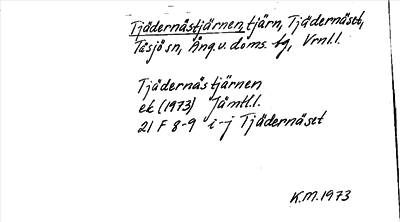 Tjädernåstjärnen, tjärn, Tjädernåset,
Tåsjö sn, Ång.v. doms. bg, Vrnl.l.
Tjädernåstjärnen
ek (1973) Jämtl.l.
21 F 8-9 i-j Tjädernåset
K.M. 1973